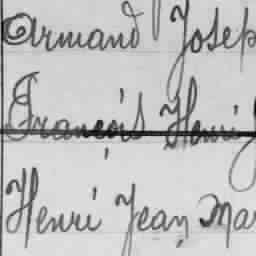 Armand Josep
François Henri
Henri Jean Mar